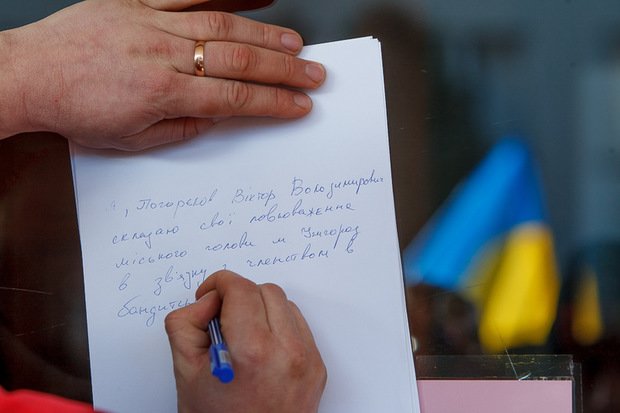 Я, Погорєлов Віктор Володимирович
складаю свої повноваження
міського голови м. Ужгород
в зв'язку з членством в